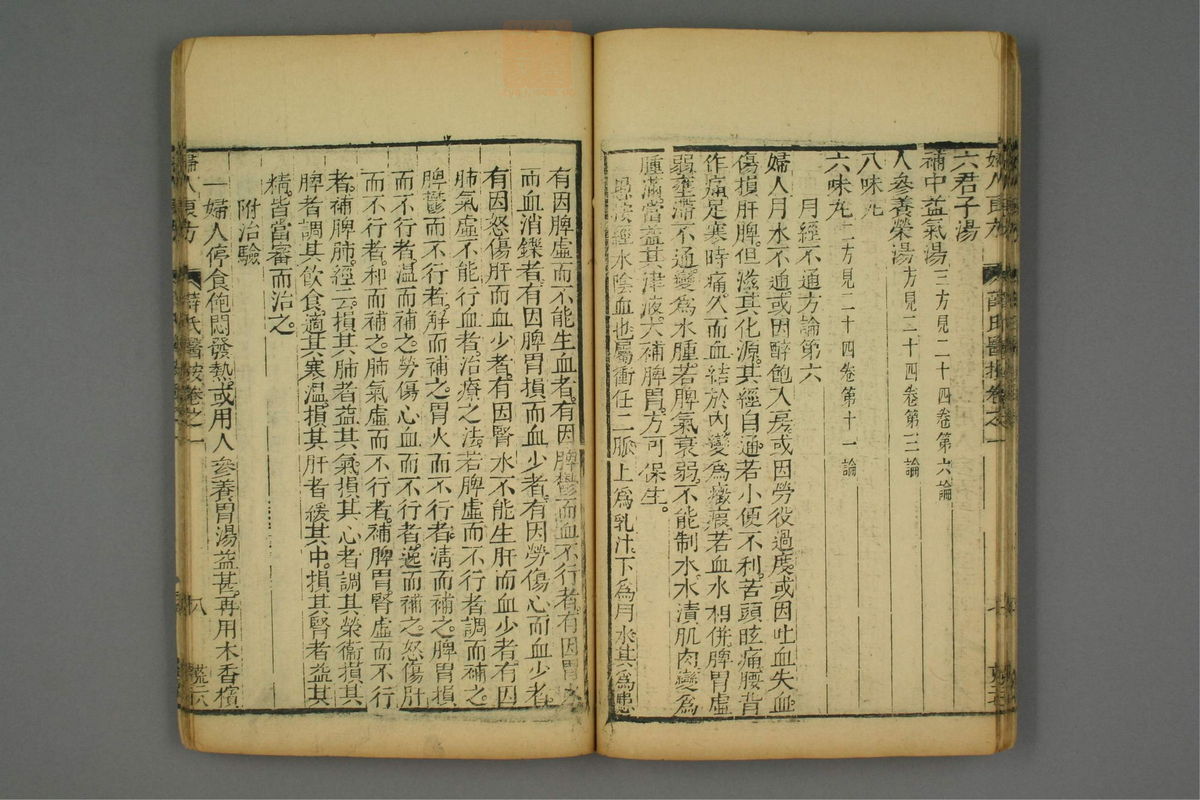 六君子湯
補中益氣湯三方見二十四卷第六論
人參養榮湯方見二十四卷第三論
八味丸
六味丸二方見二十四卷第十一論
月經不通方論第六
婦人月水不通或因醉飽入房或因勞役過度或因吐血失血
傷損肝脾但滋其化源其經自通若小便不利苦頭眩痛腰背
作痛足寒時痛久而血結於內變為癥瘕若血水相併脾胃虛
弱壅滯不通變為水腫若脾氣衰弱不能制水水漬肌肉變為
腫滿當益其津液大補脾胃方可保生
愚按經水陰血也屬衝任二脈上為乳汁下為月水其為患
有因脾虛而不能生血者有因脾鬱而血不行者有因胃火
而血消鑠者有因脾胃損而血少者有因勞傷心而血少者
有因怒傷肝而血少者有因腎水不能生肝而血少者有因
肺氣虛不能行血者治療之法若脾虛而不行者調而補之
脾鬱而不行者解而補之胃火而不行者清而補之脾胃損
而不行者温而補之勞傷心血而不行者逸而補之怒傷肝
而不行者和而補之肺氣虛而不行者補脾胃腎虛而不行
者補脾肺經云損其肺者益其氣損其心者調其榮衞損其
脾者調其飲食適其寒温損其肝者緩其中損其腎者益其
精皆當審而治之
附治驗
一婦人停食飽悶發熱或用人參養胃湯益甚再用木香檳
婦人良方 薛氏醫按卷之一 八